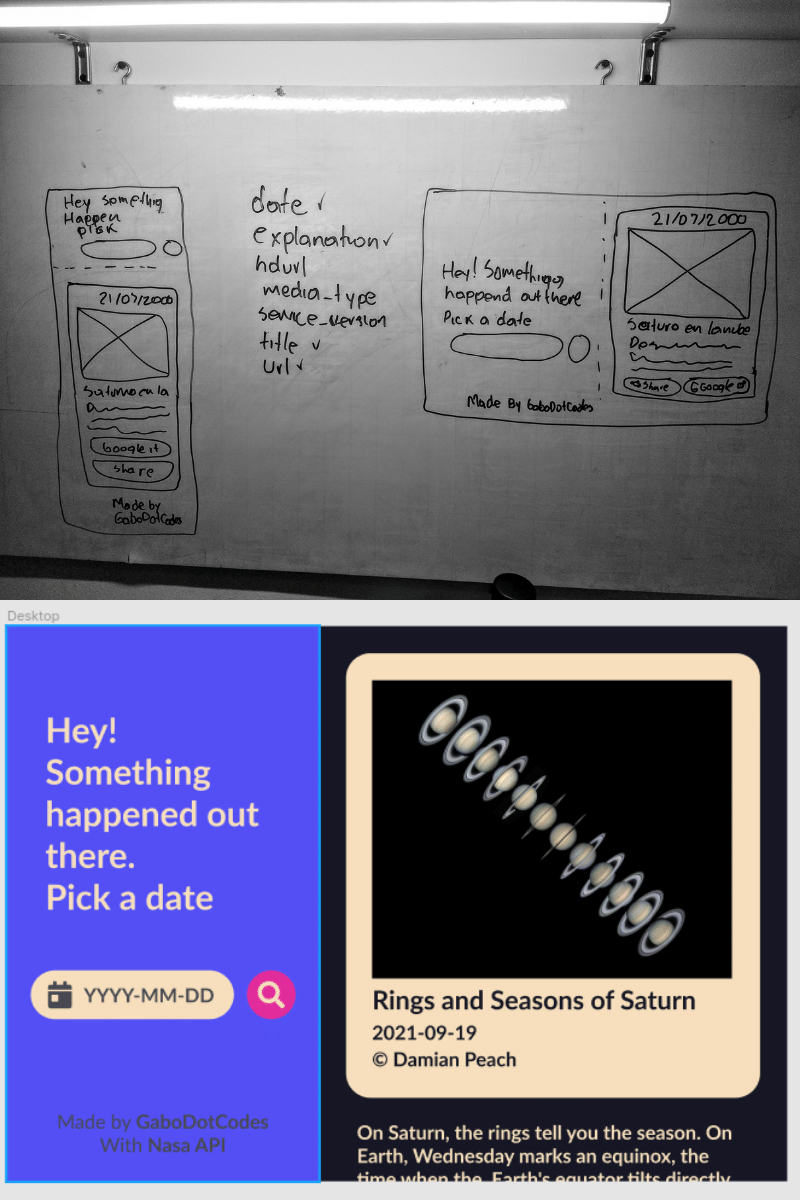 Hey something
Happen
pick
21/07/2000
Saturno en la
Google it
Share
Made by
GaboDotCodes
date ✓
explanation ✓
hdurl
media_type
service_version
title ✓
url ✓
Hey! Something
happend out there
Pick a date
Made By GaboDotCodes
21/07/2000
Saturo en la nube
Share
Google it
Desktop
Hey!
Something
happened out
there.
Pick a date
YYYY-MM-DD
Made by GaboDotCodes
With Nasa API
Rings and Seasons of Saturn
2021-09-19
© Damian Peach
On Saturn, the rings tell you the season. On
Earth, Wednesday marks an equinox, the
time when the Earth's equator tilts directly